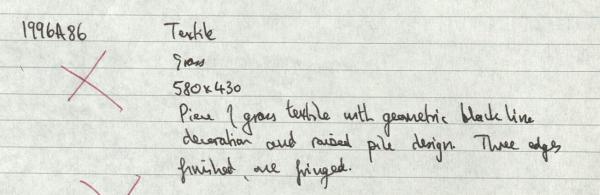 1996A86 Textile
Grass
580x430
Piece of grass textile with geometric black line
decoration and raised pile design. Three edges
finished, one fringed.